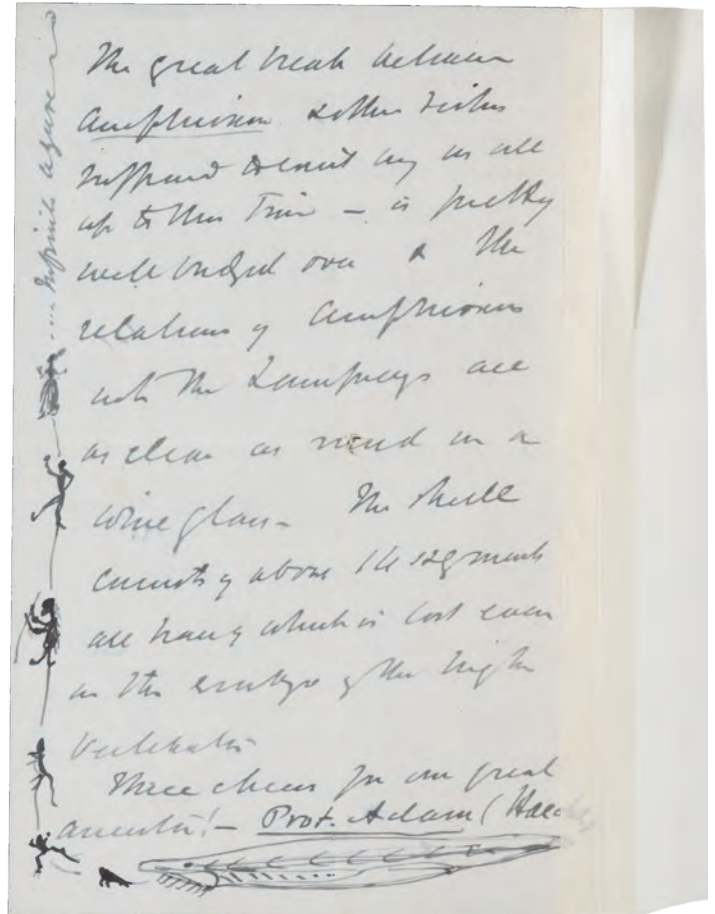 The great break between
Amphioxus & other Fishes
supposed to exist by us all
up to this Time – is pretty
well bridged over & the
relations of Amphioxus
with the Lampreys are
as clear as mud in a
wine glass – The skull
consists of above 14 segments
all trace of which is lost even
in the embryo of the higher
Vertebrata
Three cheers for our great
ancestor! – Prot. Adam (Haec